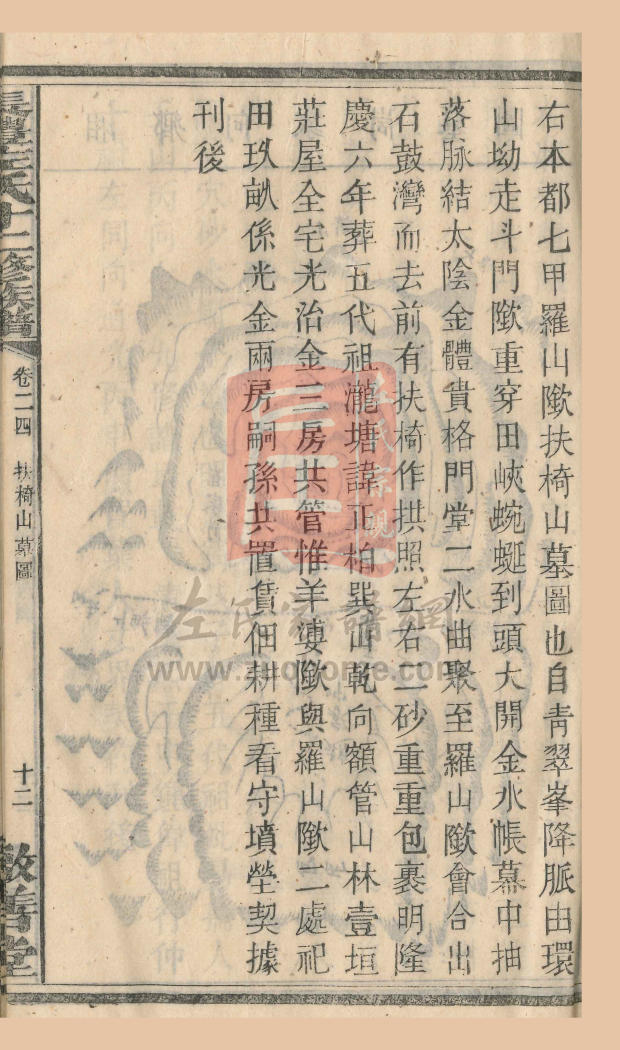 右本都七甲羅山隞扶椅山墓圖也自青翠峯降脈由環
山坳走斗門隞重穿田峽蜿蜒到頭大開金水帳幕中抽
落脉結太陰金體貴格門堂二水曲聚至羅山隞會合出
石鼓灣而去前有扶椅作拱照左右二砂重重包裹明隆
慶六年葬五代祖瀧塘諱正柏巽山乾向額管山林壹垣
莊屋全宅光治金三房共管惟羊婆隞與羅山隞二處祀
田玖畝係光金兩房嗣孫共置賃佃耕種看守墳塋契據
刊後
氏十二修族譜
卷二四
扶椅山墓圖
十二
敦善堂
左氏家譜網
www.zuojiapu.com